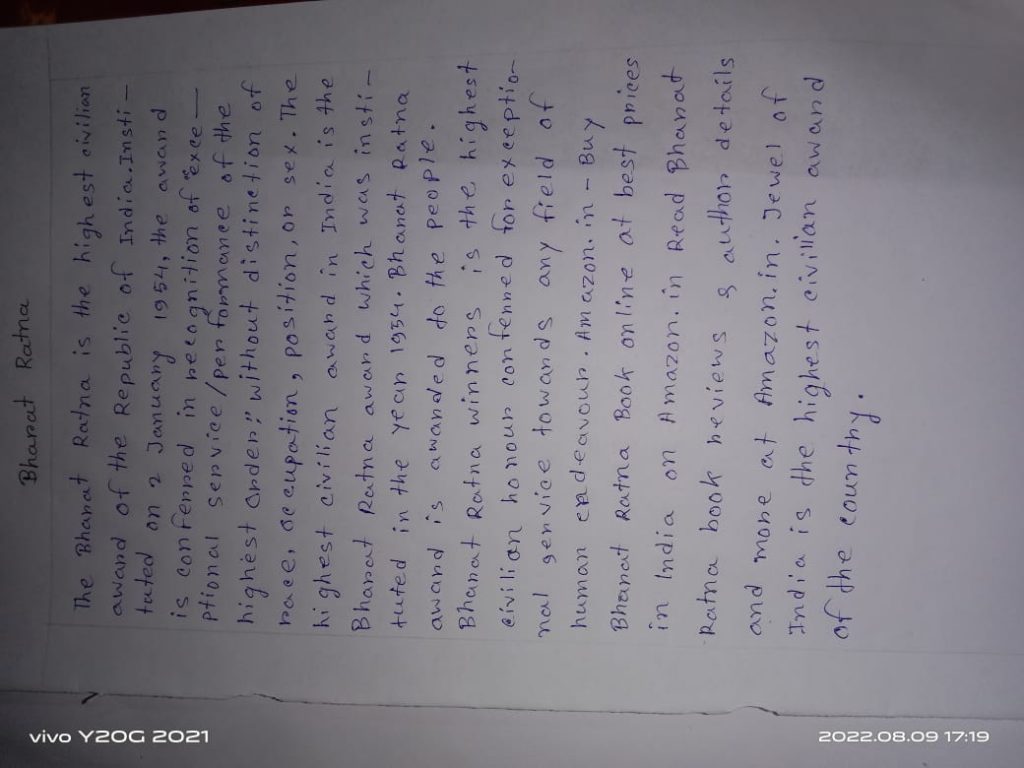 Bharat Ratna
The Bharat Ratna is the highest civilian
award of the Republic of India. Insti-
tuted on 2 January 1954, the award
is conferred in recognition of "exce-
ptional service/performance of the
highest order", without distinction of
race, occupation, position, or sex. The
highest civilian award in India is the
Bharat Ratna award which was insti-
tuted in the year 1954. Bharat Ratna
award is awarded to the people.
Bharat Ratna winners is the highest
civilian honour conferred for exceptio-
nal service towards any field of
human endeavour. Amazon.in - Buy
Bharat Ratna Book online at best prices
in India on Amazon.in Read Bharat
Ratna book reviews & author details
and more at Amazon.in. Jewel of
India is the highest civilian award
of the country.
vivo Y20G 2021
2022.08.09 17:19